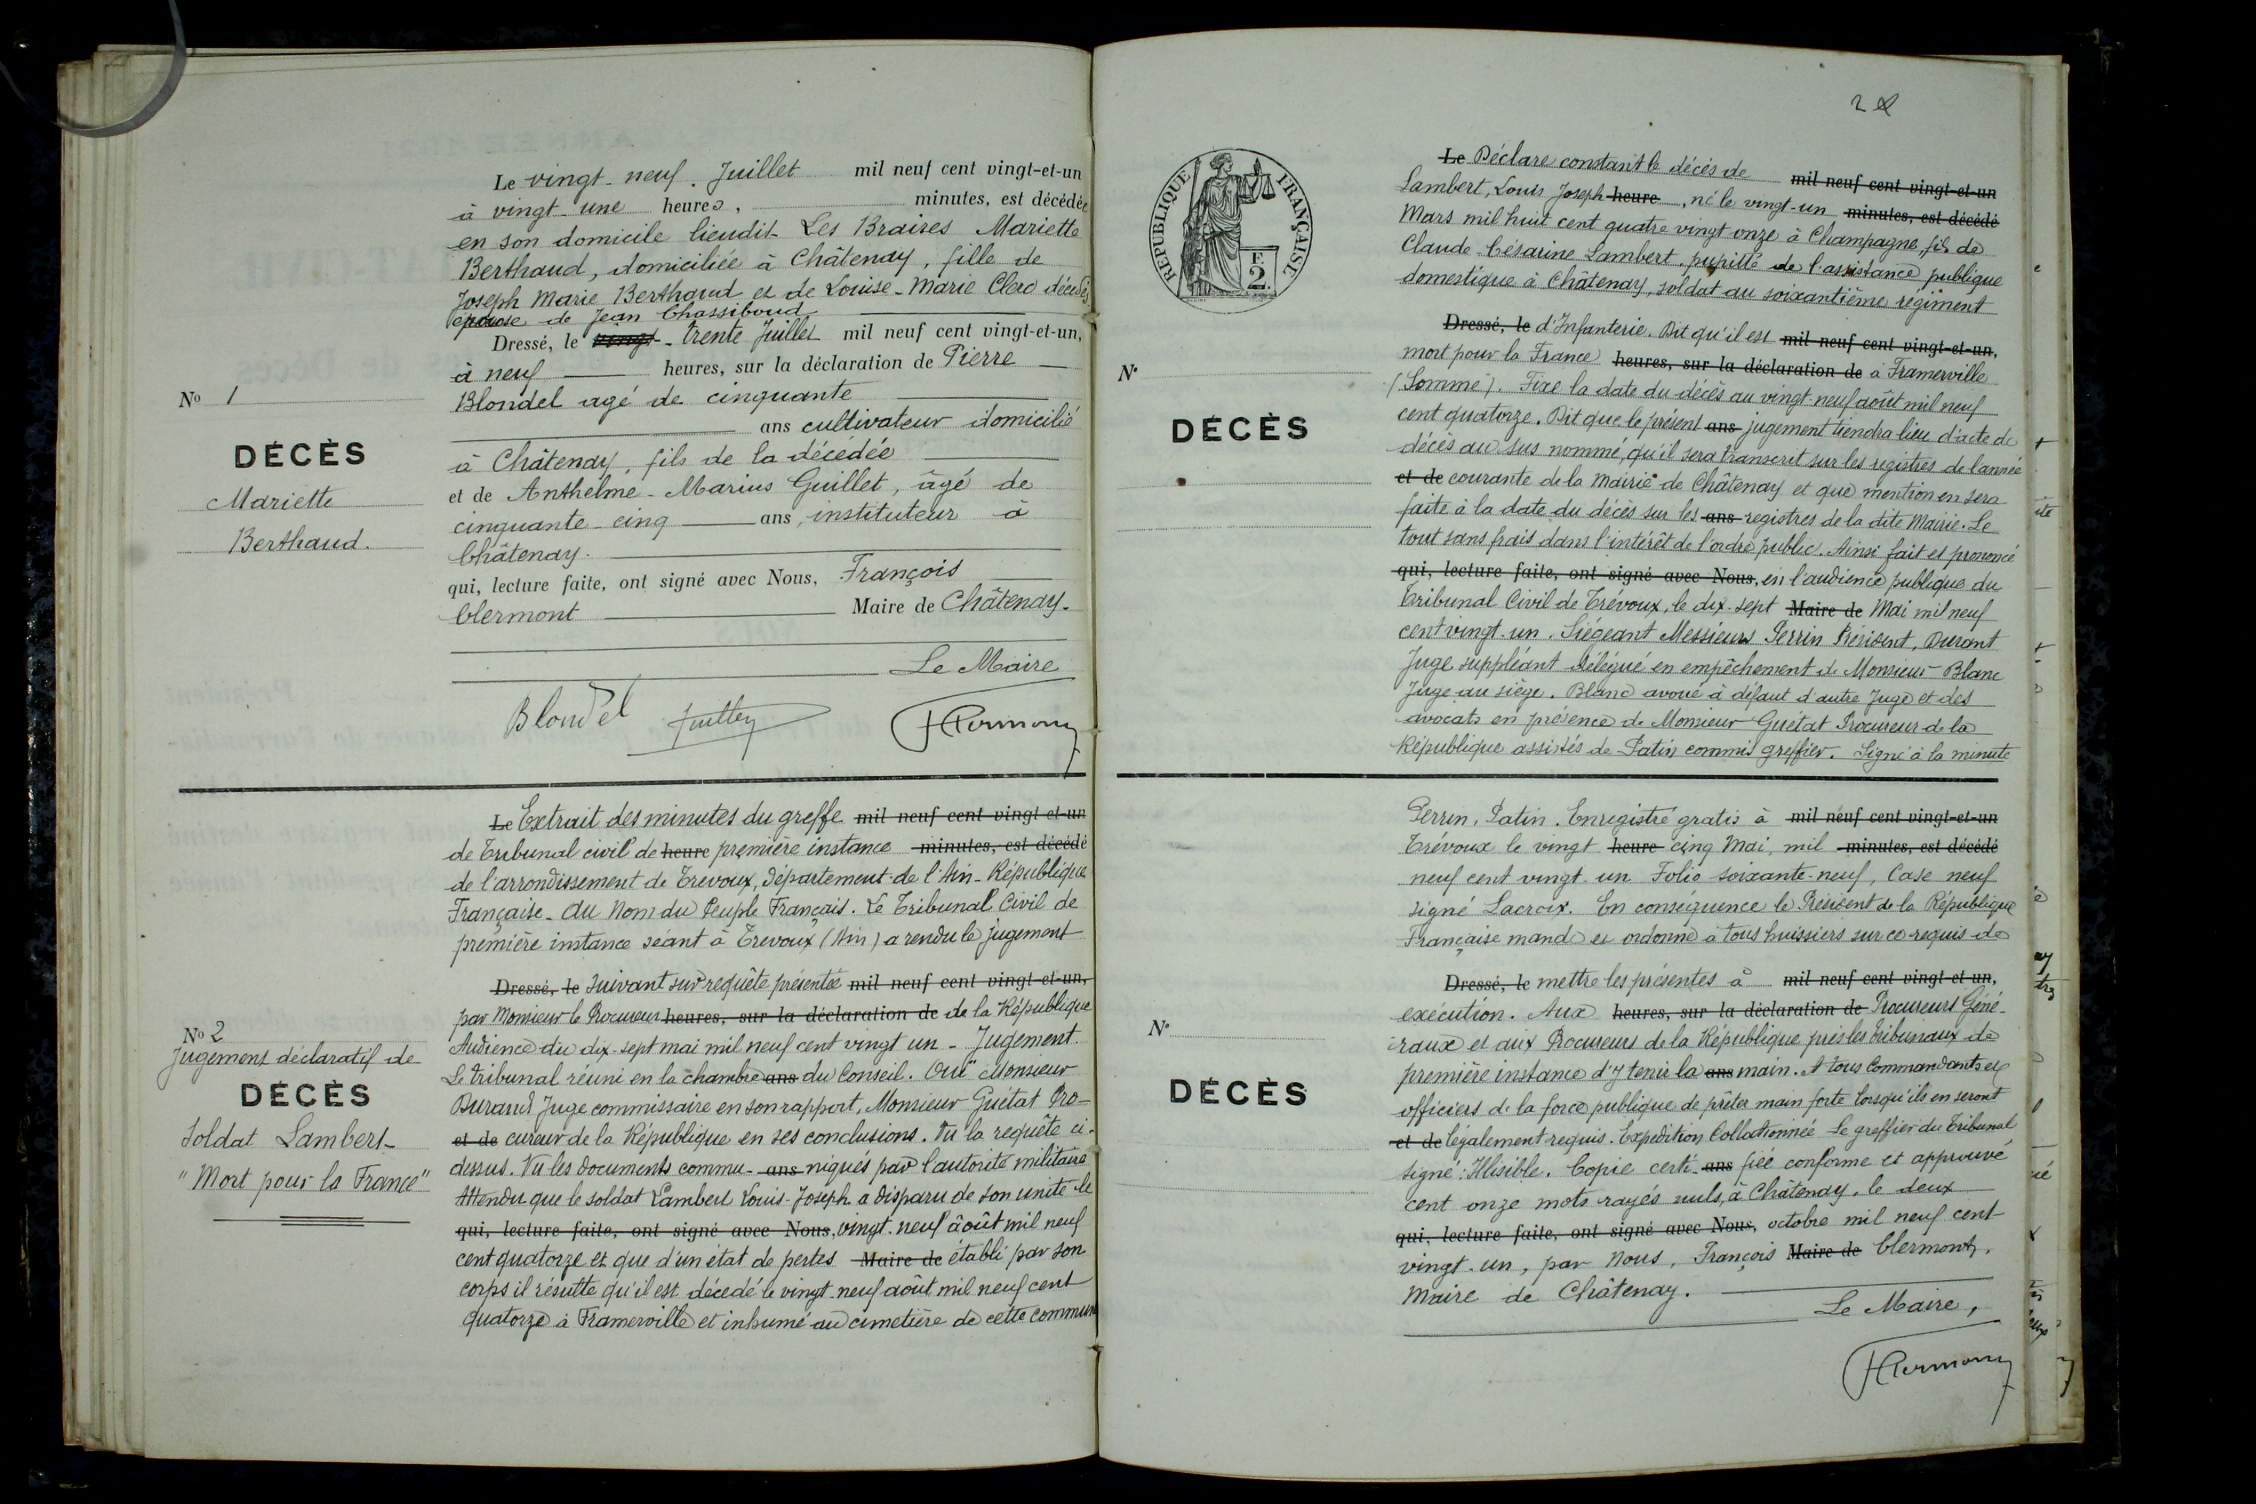 Le vingt-neuf. Juillet mil neuf cent vingt-et-un
à vingt-une heures, minutes, est décédée
en son domicile lieudit Les Braires Mariette
Berthaud, domiciliée à Châtenay, fille de
Joseph Marie Berthaud et de Louise-Marie Clerc décédés
épouse de Jean Chassiboud
Dressé, le vingt - trente Juillet mil neuf cent vingt-et-un,
à neuf heures, sur la déclaration de Pierre
Blondel agé de cinquante
ans cultivateur domicilié
à Châtenay, fils de la décédée
et de Anthelme-Marius Guillet, âgé de
cinquante-cinq ans, instituteur à
Châtenay.
qui, lecture faite, ont signé avec Nous, François
Clermont Maire de Châtenay.
Le Maire
Blondel
No 1
DÉCÈS
Mariette
Berthaud.
Le Extrait des minutes du greffe mil neuf cent vingt-et-un
de Tribunal civil de heure première instance minutes, est décédé
de l'arrondissement de Trevoux, département de l'Ain - République
Française - Au Nom du Peuple Français. Le Tribunal Civil de
première instance séant à Trevoux (Ain) a rendu le jugement
Dressé, le suivant sur requête présentée mil neuf cent vingt-et-un,
par Monsieur le Procureur heures, sur la déclaration de de la République
Audience du dix-sept mai mil neuf cent vingt un - Jugement.
Le tribunal réuni en la chambre ans du Conseil. Ouï Monsieur
Durand Juge commissaire en son rapport, Monsieur Guétat Pro-
et de cureur de la République en ses conclusions. Vu la requête ci-
dessus. Vu les documents commu- ans niqués par l'autorité militaire
Attendu que le soldat Lambert Louis-Joseph a disparu de son unité le
qui, lecture faite, ont signé avec Nous, vingt-neuf août mil neuf
cent quatorze et que d'un état de pertes Maire de établi par son
corps il résulte qu'il est décédé le vingt-neuf août mil neuf cent
quatorze à Framerville et inhumé au cimetière de cette commune
No 2
Jugement déclaratif de
DÉCÈS
Soldat Lambert
"Mort pour la France"
2
RÉPUBLIQUE FRANÇAISE
F.
2.
Le Déclare constant le décès de mil neuf cent vingt-et-un
Lambert, Louis Joseph heure, né le vingt-un minutes, est décédé
Mars mil huit cent quatre vingt onze à Champagne, fils de
Claude Césarine Lambert, pupille de l'assistance publique
domestique à Châtenay, soldat au soixantième régiment
Dressé, le d'Infanterie. Dit qu'il est mil neuf cent vingt-et-un,
mort pour la France heures, sur la déclaration de à Framerville
(Somme). Fixe la date du décès au vingt-neuf août mil neuf
cent quatorze. Dit que le présent ans jugement tiendra lieu d'acte de
décès au sus nommé, qu'il sera transcrit sur les registres de l'année
et de courante de la Mairie de Châtenay et que mention en sera
faite à la date du décès sur les ans registres de la dite Mairie. Le
tout sans frais dans l'intérêt de l'ordre public. Ainsi fait et prononcé
qui, lecture faite, ont signé avec Nous, en l'audience publique du
Tribunal Civil de Trévoux, le dix-sept Maire de Mai mil neuf
cent vingt-un. Siégeant Messieurs Perrin Président, Durant
Juge suppléant délégué en empêchement de Monsieur Blanc
Juge au siège. Blanc avoué à défaut d'autre Juge et des
avocats en présence de Monsieur Guétat Procureur de la
République assistés de Patin commis greffier. Signé à la minute
No
DÉCÈS
Perrin, Patin. Enregistré gratis à mil neuf cent vingt-et-un
Trévoux le vingt heure cinq Mai, mil minutes, est décédé
neuf cent vingt-un Folio soixante-neuf, Case neuf
signé Lacroix. En conséquence le Président de la République
Française mande et ordonne à tous huissiers sur ce requis de
Dressé, le mettre les présentes à mil neuf cent vingt-et-un,
exécution. Aux heures, sur la déclaration de Procureurs Géné-
raux et aux Procureurs de la République près les tribunaux de
première instance d'y tenir la ans main. A tous Commandants et
officiers de la force publique de prêter main forte lorsqu'ils en seront
et de légalement requis. Expédition Collationnée le greffier du Tribunal
signé: Illisible. Copie certi- ans fiée conforme et approuvé
cent onze mots rayés nuls, à Châtenay, le deux
qui, lecture faite, ont signé avec Nous, octobre mil neuf cent
vingt-un, par Nous, François Maire de Clermont,
Maire de Châtenay.
Le Maire,
No
DÉCÈS